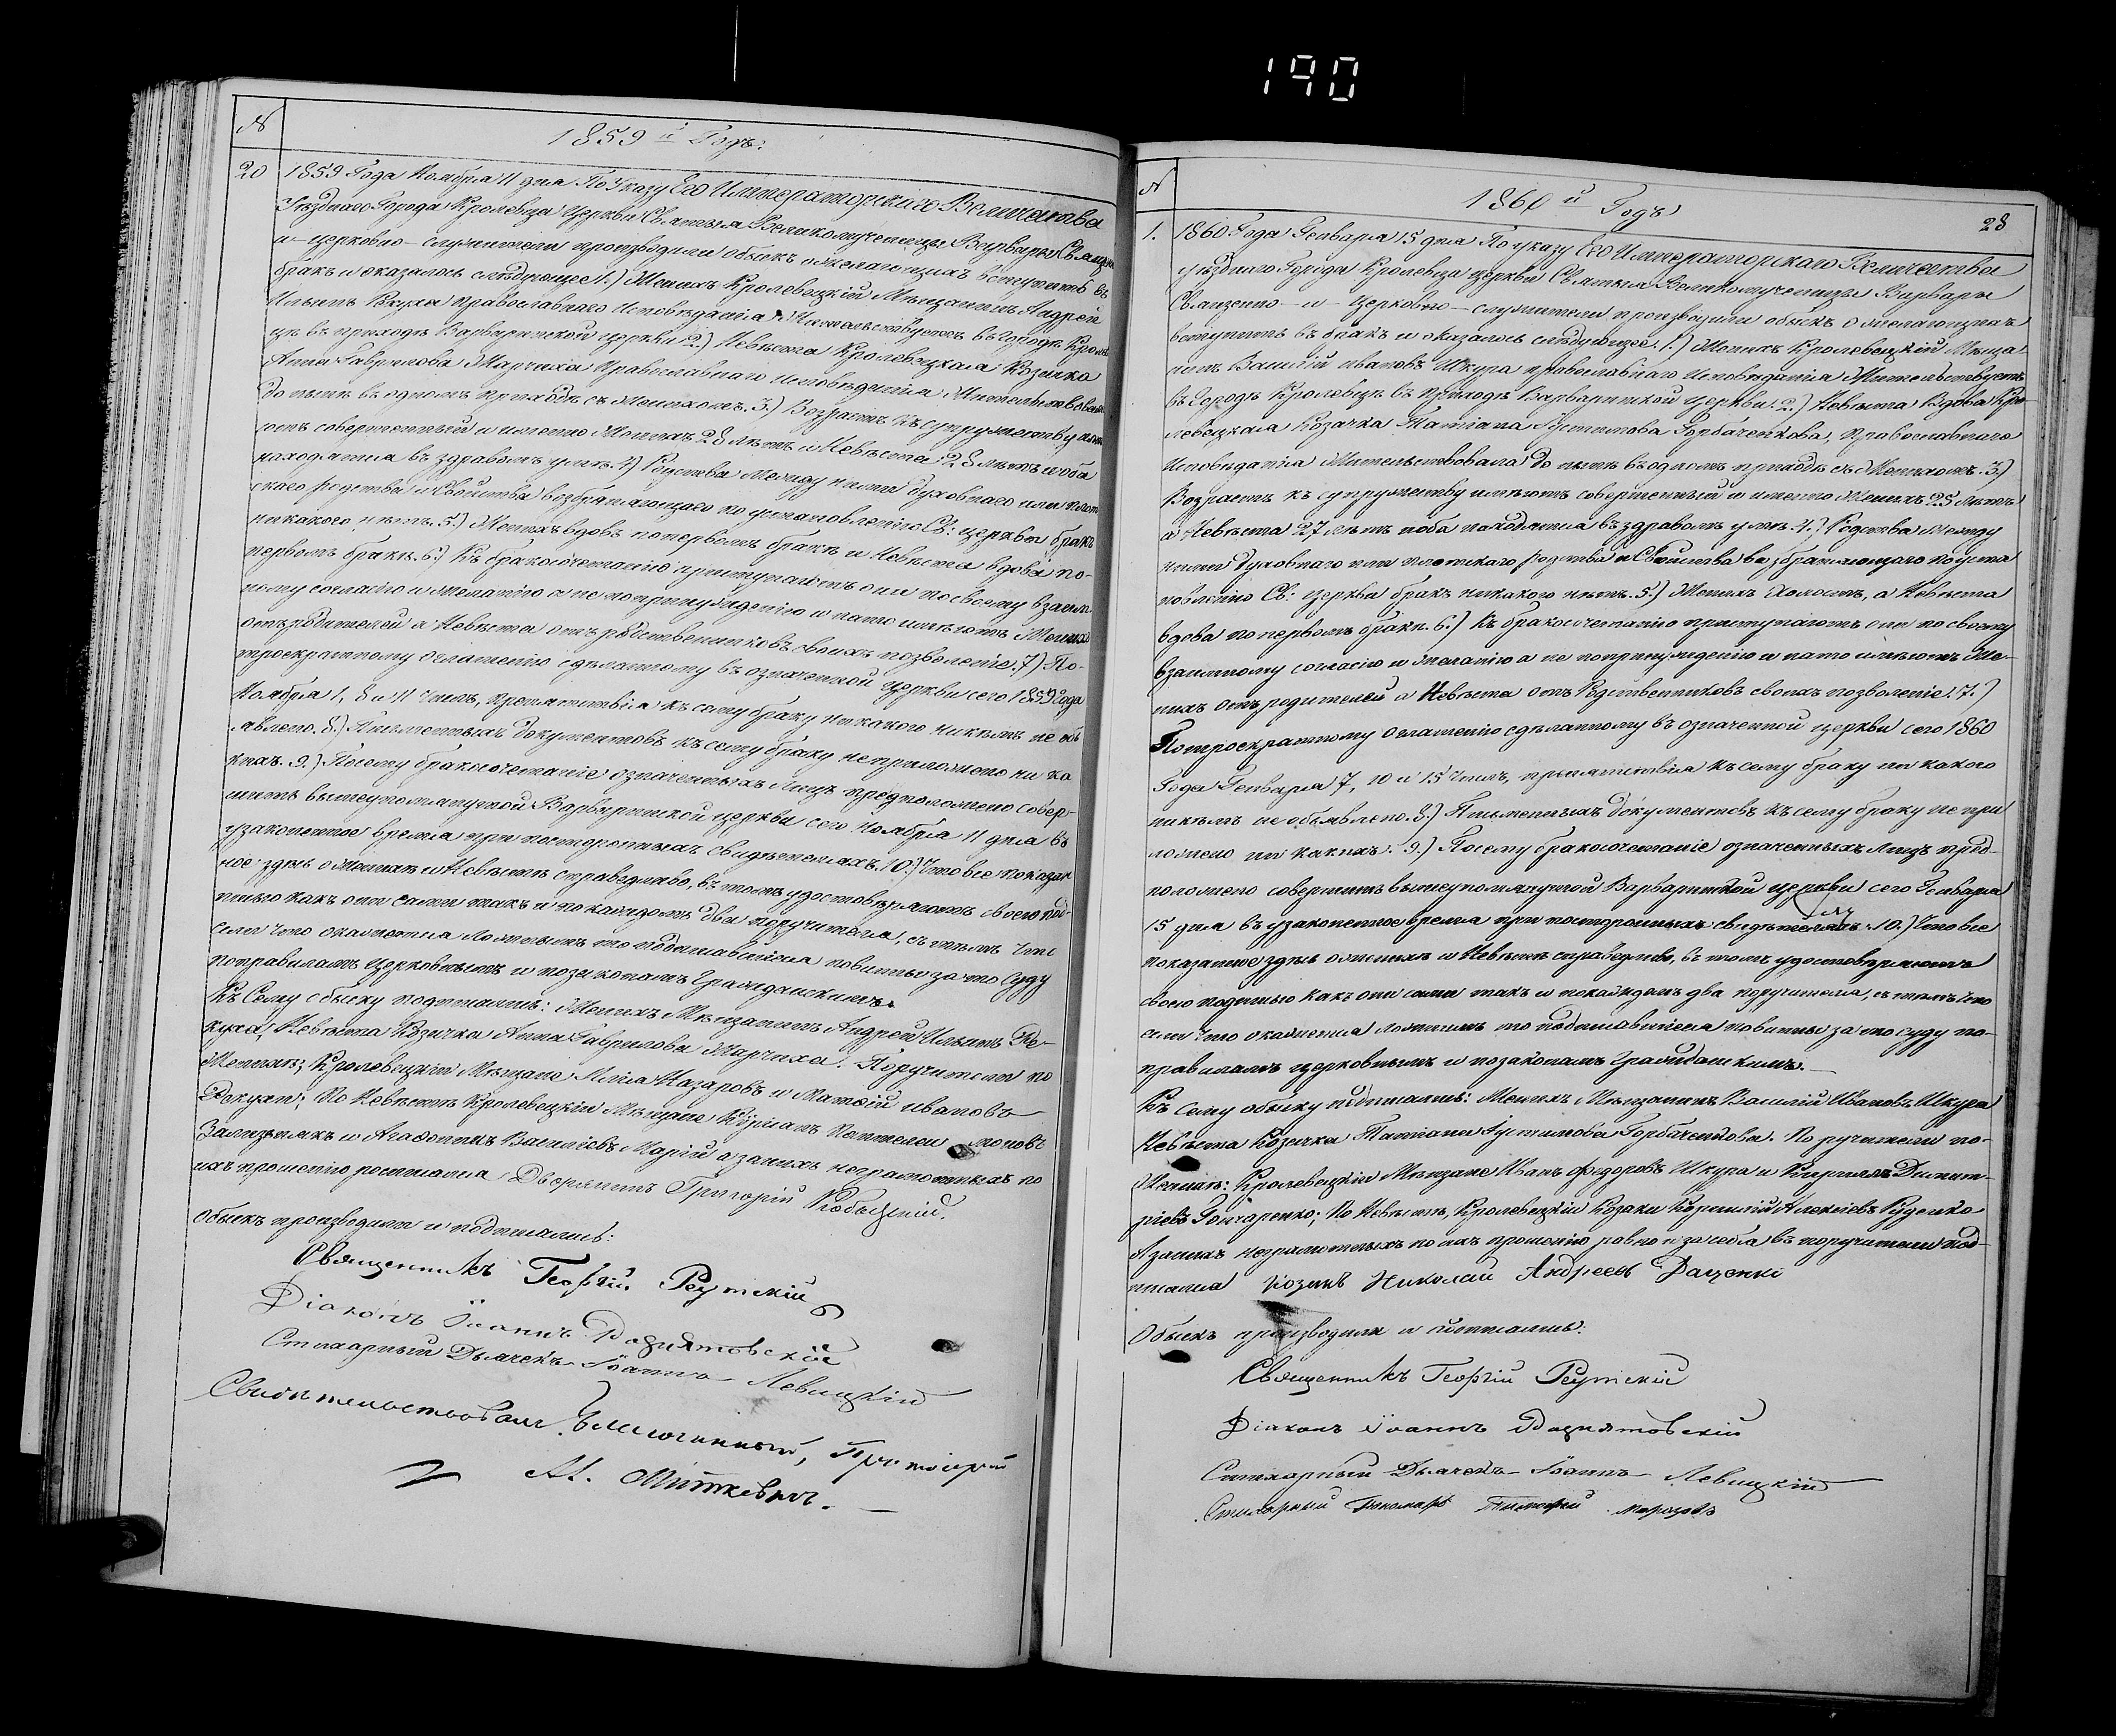 190
№
1859й Годъ.
20
1859 Года Ноября 11 дня По Указу Его Императорскаго Величества
Уѣзднаго Города Кролевца Церкви Святыя Великомученицы Варвары Священно
и-церковно-служители производили обыскъ о желающихъ вступить въ
бракъ и оказалось слѣдующее 1.) Женихъ Кролевецкій Мѣщанинъ Андрей
Ильинъ православнаго Исповѣданія Жительствуетъ въ Городѣ Кролев
цѣ въ приходѣ Варваринской церкви 2.) Невѣста Кролевецкая Козачка
Анна Гаврилова Марчиха православнаго исповѣданія Жительствовала
до нынѣ въ одномъ приходѣ съ Женихомъ. 3.) Возрастъ къ супружеству имѣ
ютъ совершенный и именно Женихъ 28 лѣтъ и Невѣста 28 лѣтъ и оба
находятся въ здравомъ умѣ. 4) Родства между ними духовнаго или плот
скаго родства и Свойства возбраняющаго по установленію Св: церкви бракъ
никакого нѣтъ. 5.) Женихъ вдовъ по первомъ бракѣ и Невѣста вдова по-
первомъ бракѣ. 6.) Къ бракосочетанію приступаютъ они по своему взаим
ному согласію и желанію а не по принужденію и на то имѣютъ Женихъ
отъ родителей а Невѣста отъ родственниковъ своихъ позволеніе. 7) По-
троекратному оглашенію сдѣланному въ означенной церкви сего 1859 Года
Ноября 1, 8 и 11 Чиселъ, препятствія къ сему браку никакого никѣмъ не объ
явлено. 8.) Письменныхъ документовъ къ сему браку не приложено ни ка
кихъ. 9.) Посему бракосочетаніе означенныхъ Лицъ предположено совер-
шить вышеупомянутой Варваринской церкви сего Ноября 11 дня въ
узаконенное время при постороннихъ свидѣтеляхъ. 10.) Что все показан
ное здѣсь о Женихѣ и Невѣстѣ справедливо, въ томъ удостовѣряютъ своею под-
писью какъ они сами такъ и по каждомъ два поручителя, съ тѣмъ что
если что окажется ложнымъ то подписавшіеся повинны за то Суду
по правиламъ церковнымъ и по законамъ Гражданскимъ.
Къ Сему обыску подписались: Женихъ Мѣщанинъ Андрей Ильинъ
Невѣста Козачка Анна Гаврилова Марчиха. Поручители по
Женихѣ; Кролевецкіи Мѣщане Илія Назаровъ и Матѳій ивановъ
По Невѣстѣ Кролевецкіи Мѣщане
и Агаѳонъ Василіевъ а за нихъ неграмотныхъ по
ихъ прошенію росписался Дворянинъ Григорій
Обыскъ производили и подписались:
Священникъ Георгій Реутскій
Діаконъ Іоаннъ
Стихарный Дьячекъ Іоаннъ Левицкій
Свидѣтельствовалъ Благочинный, Протоіерей
А. Миткевичъ.
№
1860й Годъ
28
1.
1860 Года Генваря 15 дня По указу Его Императорскаго Величества
уѣзднаго Города Кролевца церкви Святыя Великомученицы Варвары
Священно-и-церковно-служители производили обыскъ о желающихъ
вступить въ бракъ и оказалось слѣдующее. 1.) Женихъ Кролевецкій Мѣща-
нинъ Василій ивановъ Шкура православнаго Исповѣданія Жительствуетъ
въ Городѣ Кролевцѣ въ приходѣ Варваринской церкви. 2.) Невѣста Вдова Кро-
левецкая Козачка Татіана Густинова Горбаченкова, православнаго
Исповѣданія Жительствовала до нынѣ въ одномъ приходѣ съ Женихомъ. 3.)
Возрастъ къ супружеству имѣютъ совершенный и именно Женихъ 25 Лѣтъ
а Невѣста 27 лѣтъ и оба находятся въ здравомъ умѣ. 4.) Родства между
ними духовнаго или плотскаго родства и Свойства возбраняющаго по уста
новленію Св: церкви бракъ никакого нѣтъ. 5.) Женихъ Холостъ, а Невѣста
вдова по первомъ бракѣ. 6.) Къ бракосочетанію приступаютъ они по своему
взаимному согласію и желанію а не по принужденію и на то имѣютъ Же-
нихъ отъ родителей а Невѣста отъ Родственниковъ своихъ позволеніе. 7.)
По троекратному оглашенію сдѣланному въ означенной церкви сего 1860
Года Генваря 7, 10 и 15 Чиселъ, препятствія къ сему браку ни какого
никѣмъ не объявлено. 8.) Письменныхъ документовъ къ сему браку не при
ложено ни какихъ. 9.) Посему бракосочетаніе означенныхъ Лицъ пред-
положено совершить вышеупомянутой Варваринской церкви сего Генваря
15 дня въ узаконенное время при постороннихъ свидѣтеляхъ. 10.) Что все
показанное здѣсь о женихѣ и Невѣстѣ справедливо, въ томъ удостовѣряютъ
своею подписью какъ они сами такъ и по каждомъ два поручителя, съ тѣмъ что
если что окажется ложнымъ то подписавшіеся повинны за то суду по-
правиламъ церковнымъ и по законамъ Гражданскимъ.
Къ сему обыску подписались: Женихъ Мѣщанинъ Василій Ивановъ Шкура
Невѣста Козачка Татіана Густинова Горбаченкова. Поручители по-
Женихѣ: Кролевецкіи Мѣщане Иванъ Федоровъ Шкура и Кириллъ Димит-
ріевъ Гончаренко; По Невѣстѣ, Кролевецкіи Козаки Корнилій Алексѣевъ Руденко
А за нихъ неграмотныхъ по ихъ прошенію равно и за себя въ поручители под-
писался Козакъ Николай Андреевъ Даценко
Обыскъ производили и подписались:
Священникъ Георгій Реутскій
Діаконъ Іоаннъ
Стихарный Дьячекъ Іоаннъ Левицкій
Стихарный Пономарь Тимофей Морозовъ